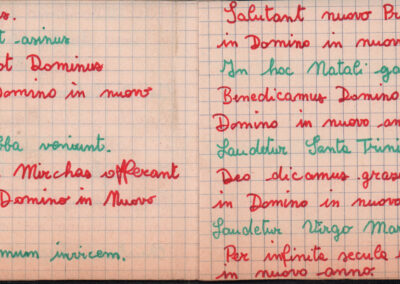 s.
t asinus
ot Dominus
Domino in nuovo
bba veniunt.
Mirchas offerant
Domino in Nuovo
mum invicem.
Salutant nuovo Br
in Domino in nuovo
In hoc Natali ga
Benedicamus Domino
Domino in nuovo an
Laudetur Santa Trini
Deo dicamus gras
in Domino in nuovo
Laudetur Virgo Mar
Per infinita secula
in nuovo anno.